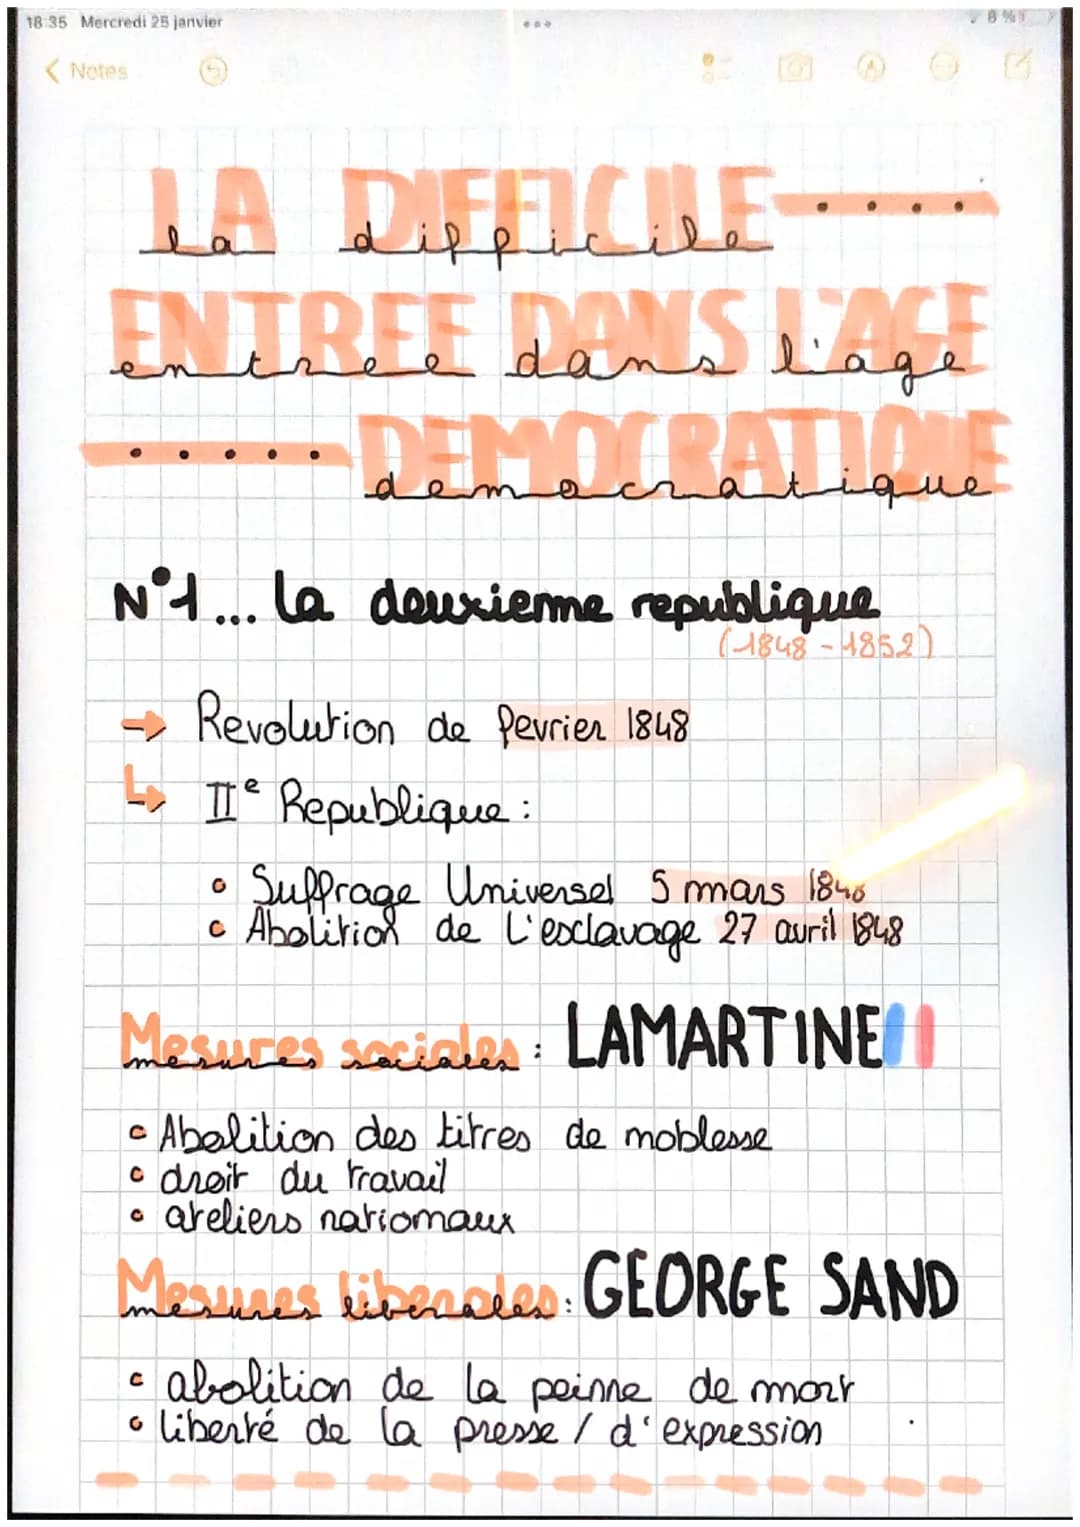 18:35 Mercredi 25 janvier
8 %
Notes
LA DIFFICILE
la difficile
ENTREE DANS L'AGE
entree dans l'age
DEMOCRATIQUE
democratique
N°1... la deuxienme republique
(1848 - 1852)
→ Revolution de fevrier 1848
↳ IIe Republique :
• Suffrage Universel 5 mars 1848
• Abolition de l'esclavage 27 avril 1848
Mesures sociales : LAMARTINE
mesures sociales
• Abolition des titres de noblesse
• droit du travail
• ateliers nationaux
Mesures liberales : GEORGE SAND
mesures liberales
• abolition de la peinne de mort
• liberté de la presse / d'expression